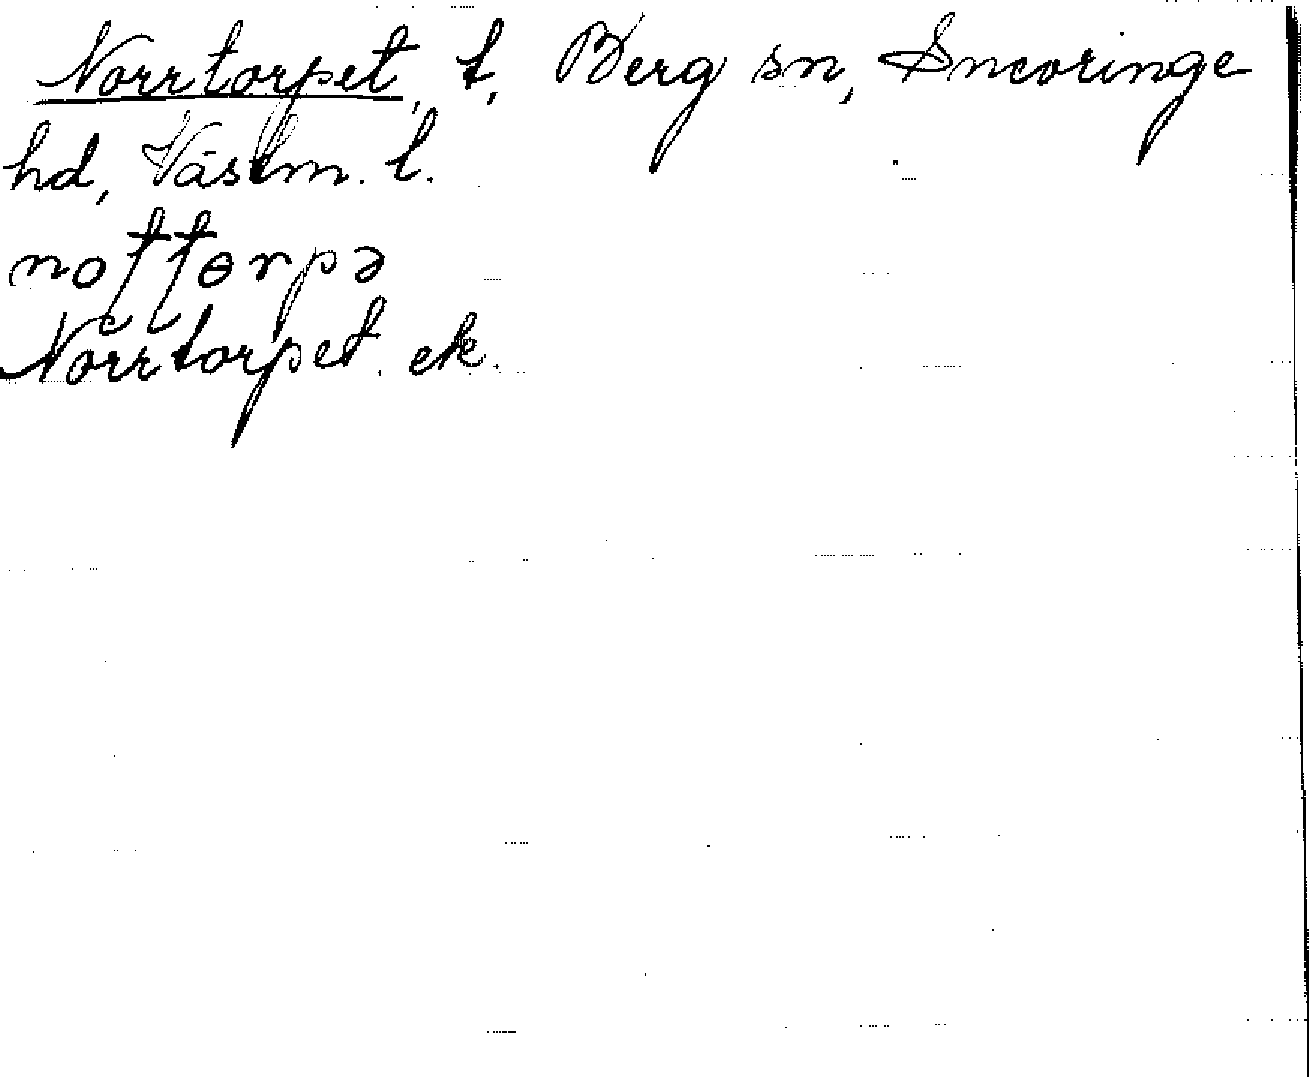 Norrtorpet, t, Berg sn, Snevringe
hd, Västm. l.
noʈʈɵrpə
Norrtorpet. ek.